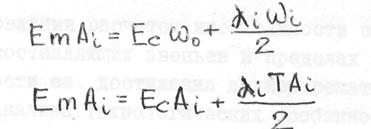 EmAi = Ecω₀ + λiωi/2
EmAi = EcAi + λiTAi/2